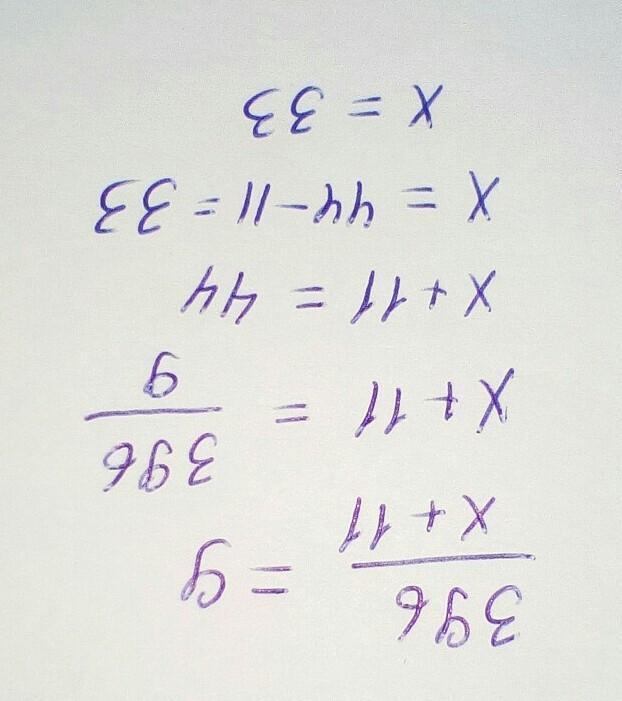 396/(x+11) = 9
x+11 = 396/9
x+11 = 44
x = 44-11 = 33
x = 33